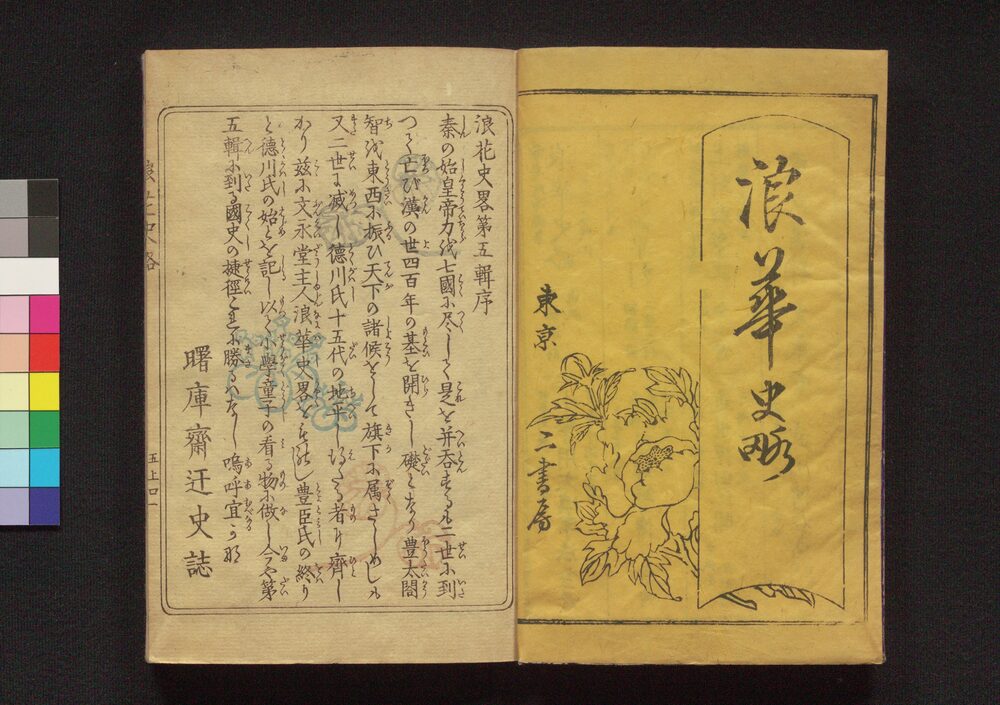 浪華史略
東京 二書房
浪花史畧第五輯序
秦の始皇帝力を七國に尽して是を并呑するも二世に到
つて亡び漢の世四百年の基を開きし礎となり豊太閤
智を東西に振ひ天下の諸候をして旗下に属さしめしも
又二世に滅し徳川氏十五代の地平し たる者に齊し
かり茲に文永堂主人浪華史畧を し豊臣氏の終り
と徳川氏の始とを記し以て小學童子の看る物に倣し今や第
五輯に到る國史の捷徑これに勝るはなし嗚呼宜かな
曙庫齋迂史誌
五上口一